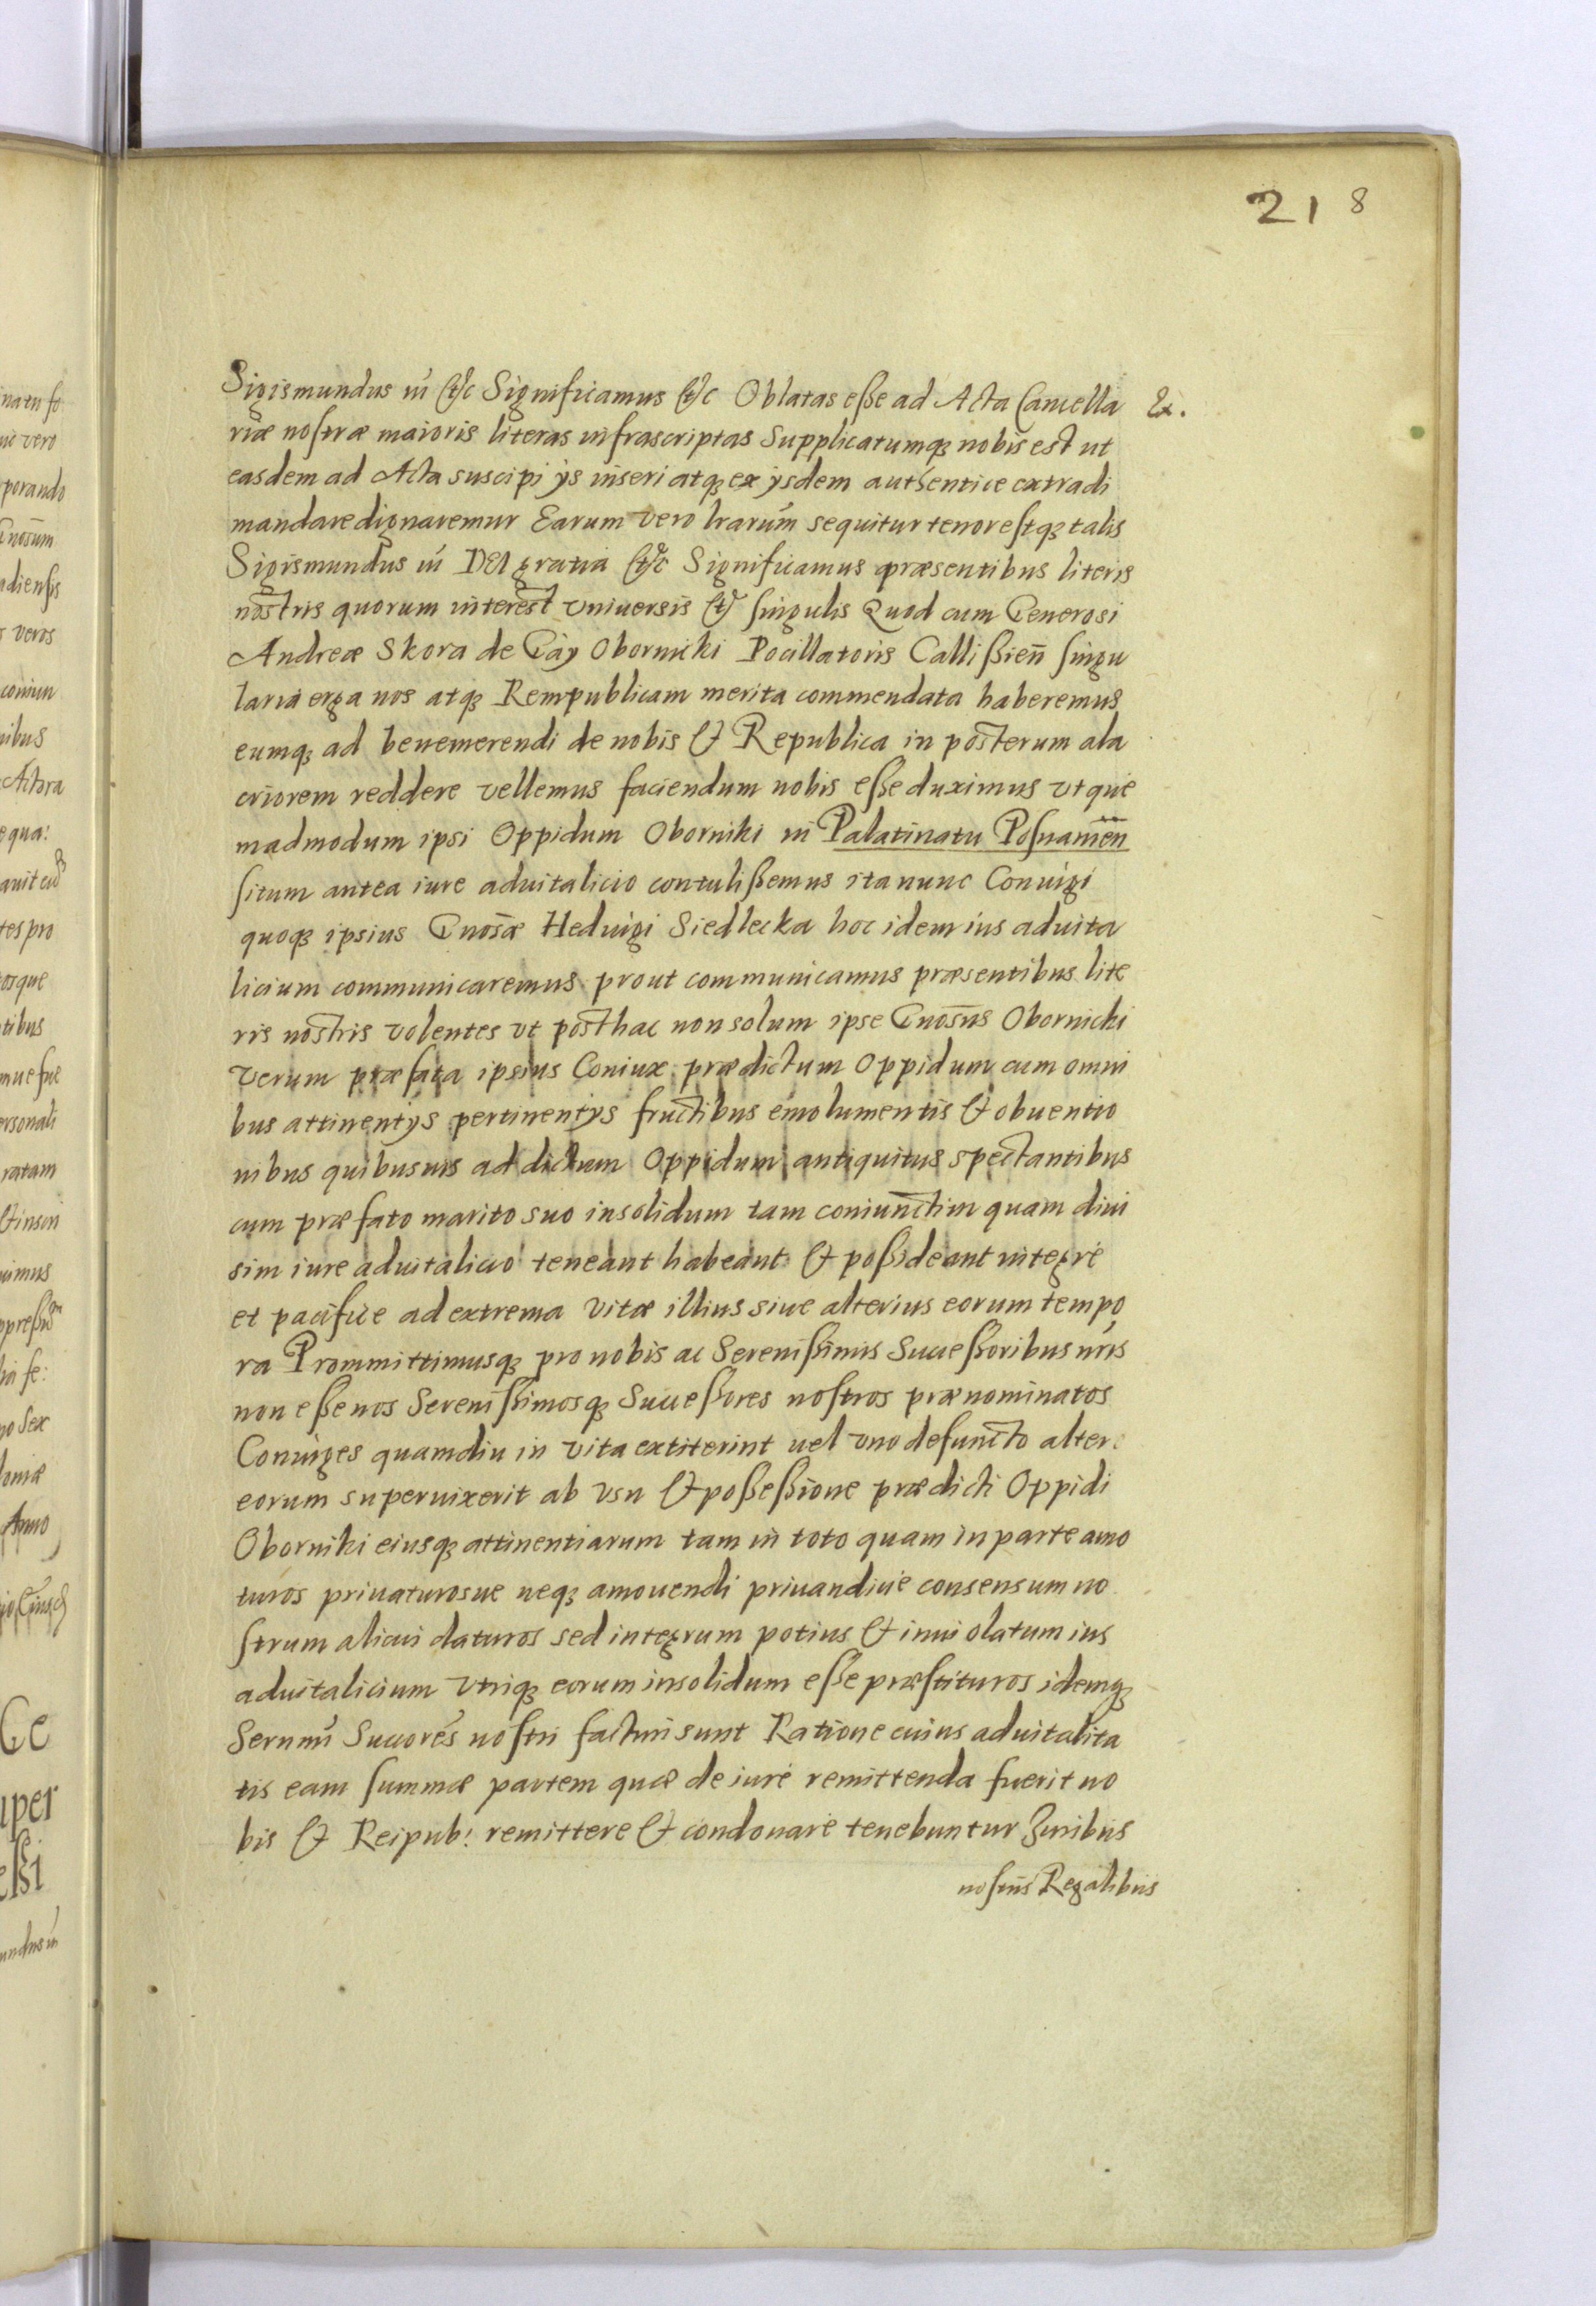 21 8
Sigismundus iii &c Significamus &c Oblatas eße ad Acta Cancella &.
riæ nostræ maioris literas infrascriptas Supplicatumq₃ nobis est ut
easdem ad Acta suscipi ijs inseri atq₃ ex ijsdem authentice extradi
mandare dignaremur Earum vero lrarum sequitur tenor estq₃ talis
Sigismundus iii DEI gratia &c Significamus præsentibus literis
nostris quorum interest vniuersis & singulis Quod cum Generosi
Andreæ Skora de Gay Obornicki Pocillatoris Callißien̄ singu
laria erga nos atq₃ Rempublicam merita commendata haberemus
eumq₃ ad benemerendi de nobis & Republica in posterum ala
criorem reddere vellemus faciendum nobis eße duximus vt que
madmodum ipsi Oppidum Oborniki in Palatinatu Posnamen̄
situm antea iure aduitalicio contulißemus ita nunc Coniugi
quoq₃ ipsius Gnosæ Heduigi Siedlecka hoc idem ius aduita
licium communicaremus prout communicamus præsentibus lite
ris nostris volentes vt posthac non solum ipse Gnosus Obornicki
verum præfata ipsius Coniux prædictum Oppidum cum omni
bus attinentijs pertinentijs fructibus emolumentis & obuentio
nibus quibusuis ad dictum Oppidum antiquitus spectantibus
cum præfato marito suo insolidum tam coniunctim quam diui
sim iure aduitalicio teneant habeant & poßideant integre
et pacifice ad extrema vitæ illius siue alterius eorum tempo
ra Prommittimusq₃ pro nobis ac Serenißimis Succeßoribus nr̄is
non eße nos Serenißimosq₃ Succeßores nostros prænominatos
Coniuges quamdiu in vita extiterint uel vno defuncto alter
eorum superuixerit ab vsu & poßeßione prædicti Oppidi
Oborniki eiusq₃ attinentiarum tam in toto quam in parte amo
turos priuaturosue neq₃ amouendi priuandiue consensum no
strum alicui daturos sed integrum potius & inuiolatum ius
aduitalicium vtriq₃ eorum insolidum eße præstituros idemq₃
Sernmi Succores nostri facturi sunt Ratione cuius aduitalita
tis eam summæ partem quæ de iure remittenda fuerit no
bis & Reipub: remittere & condonare tenebuntur Iuribus
nostris Regalibus